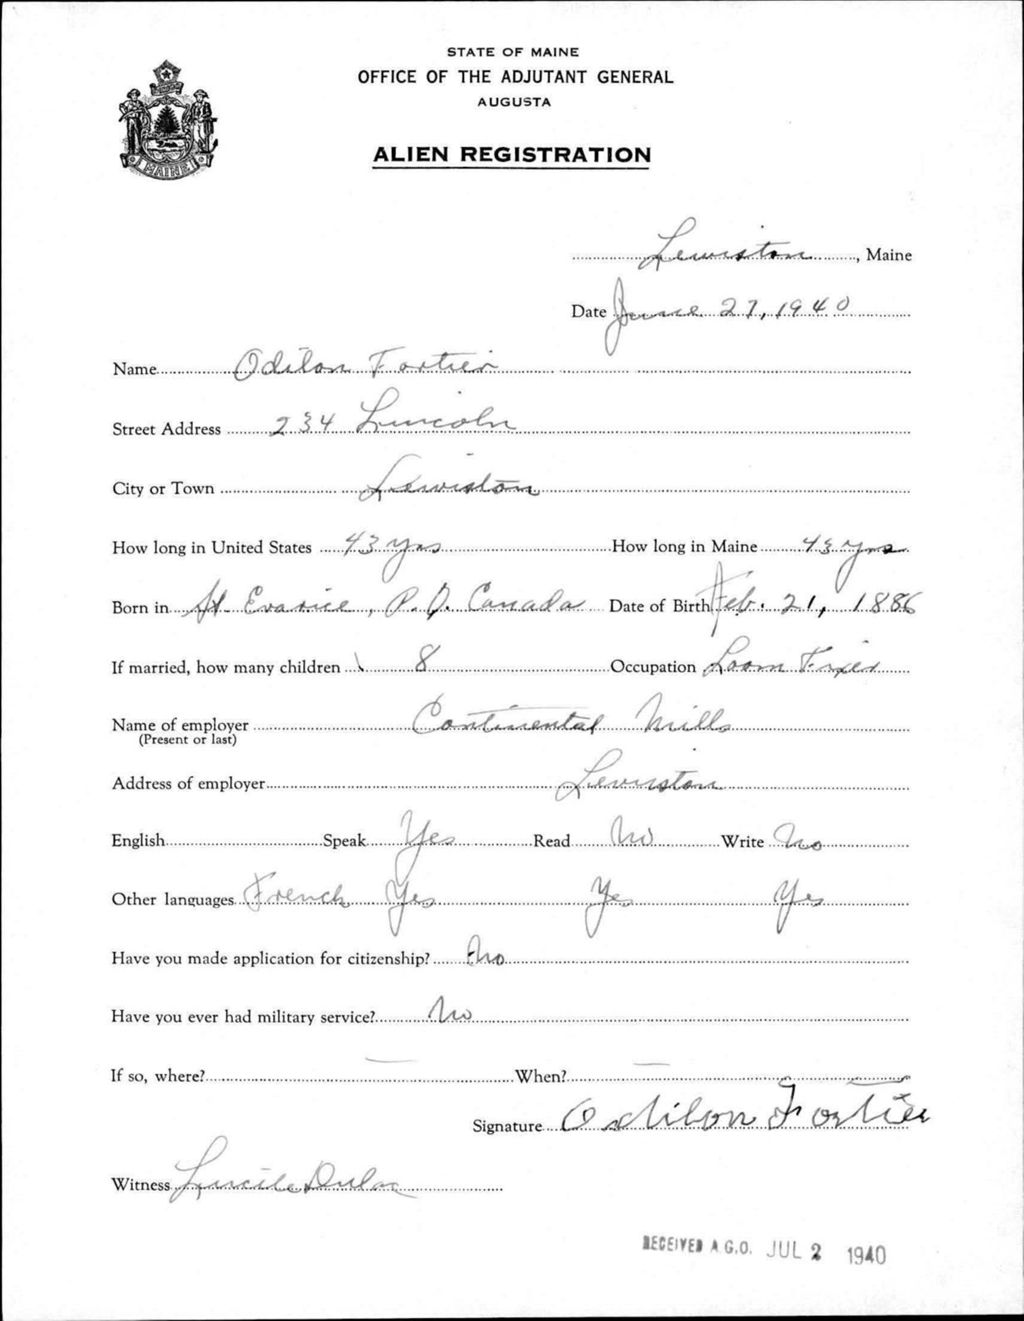 STATE OF MAINE
OFFICE OF THE ADJUTANT GENERAL
AUGUSTA
MAINE
ALIEN REGISTRATION
Lewiston, Maine
Date June 27, 1940
Name Odilon Fortier
Street Address 234 Lincoln
City or Town Lewiston
How long in United States 43 yrs How long in Maine 43 yrs
Born in St. Evarice, P. Q. Canada Date of Birth Feb. 21, 1886
If married, how many children 8 Occupation Loom Fixer
Name of employer Continental Mills
(Present or last)
Address of employer Lewiston
English Speak Yes Read No Write No
Other languages French Yes Yes Yes
Have you made application for citizenship? No
Have you ever had military service? No
If so, where? — When? —
Signature Odilon Fortier
Witness Lucile Dulac
RECEIVED A.G.O. JUL 2 1940